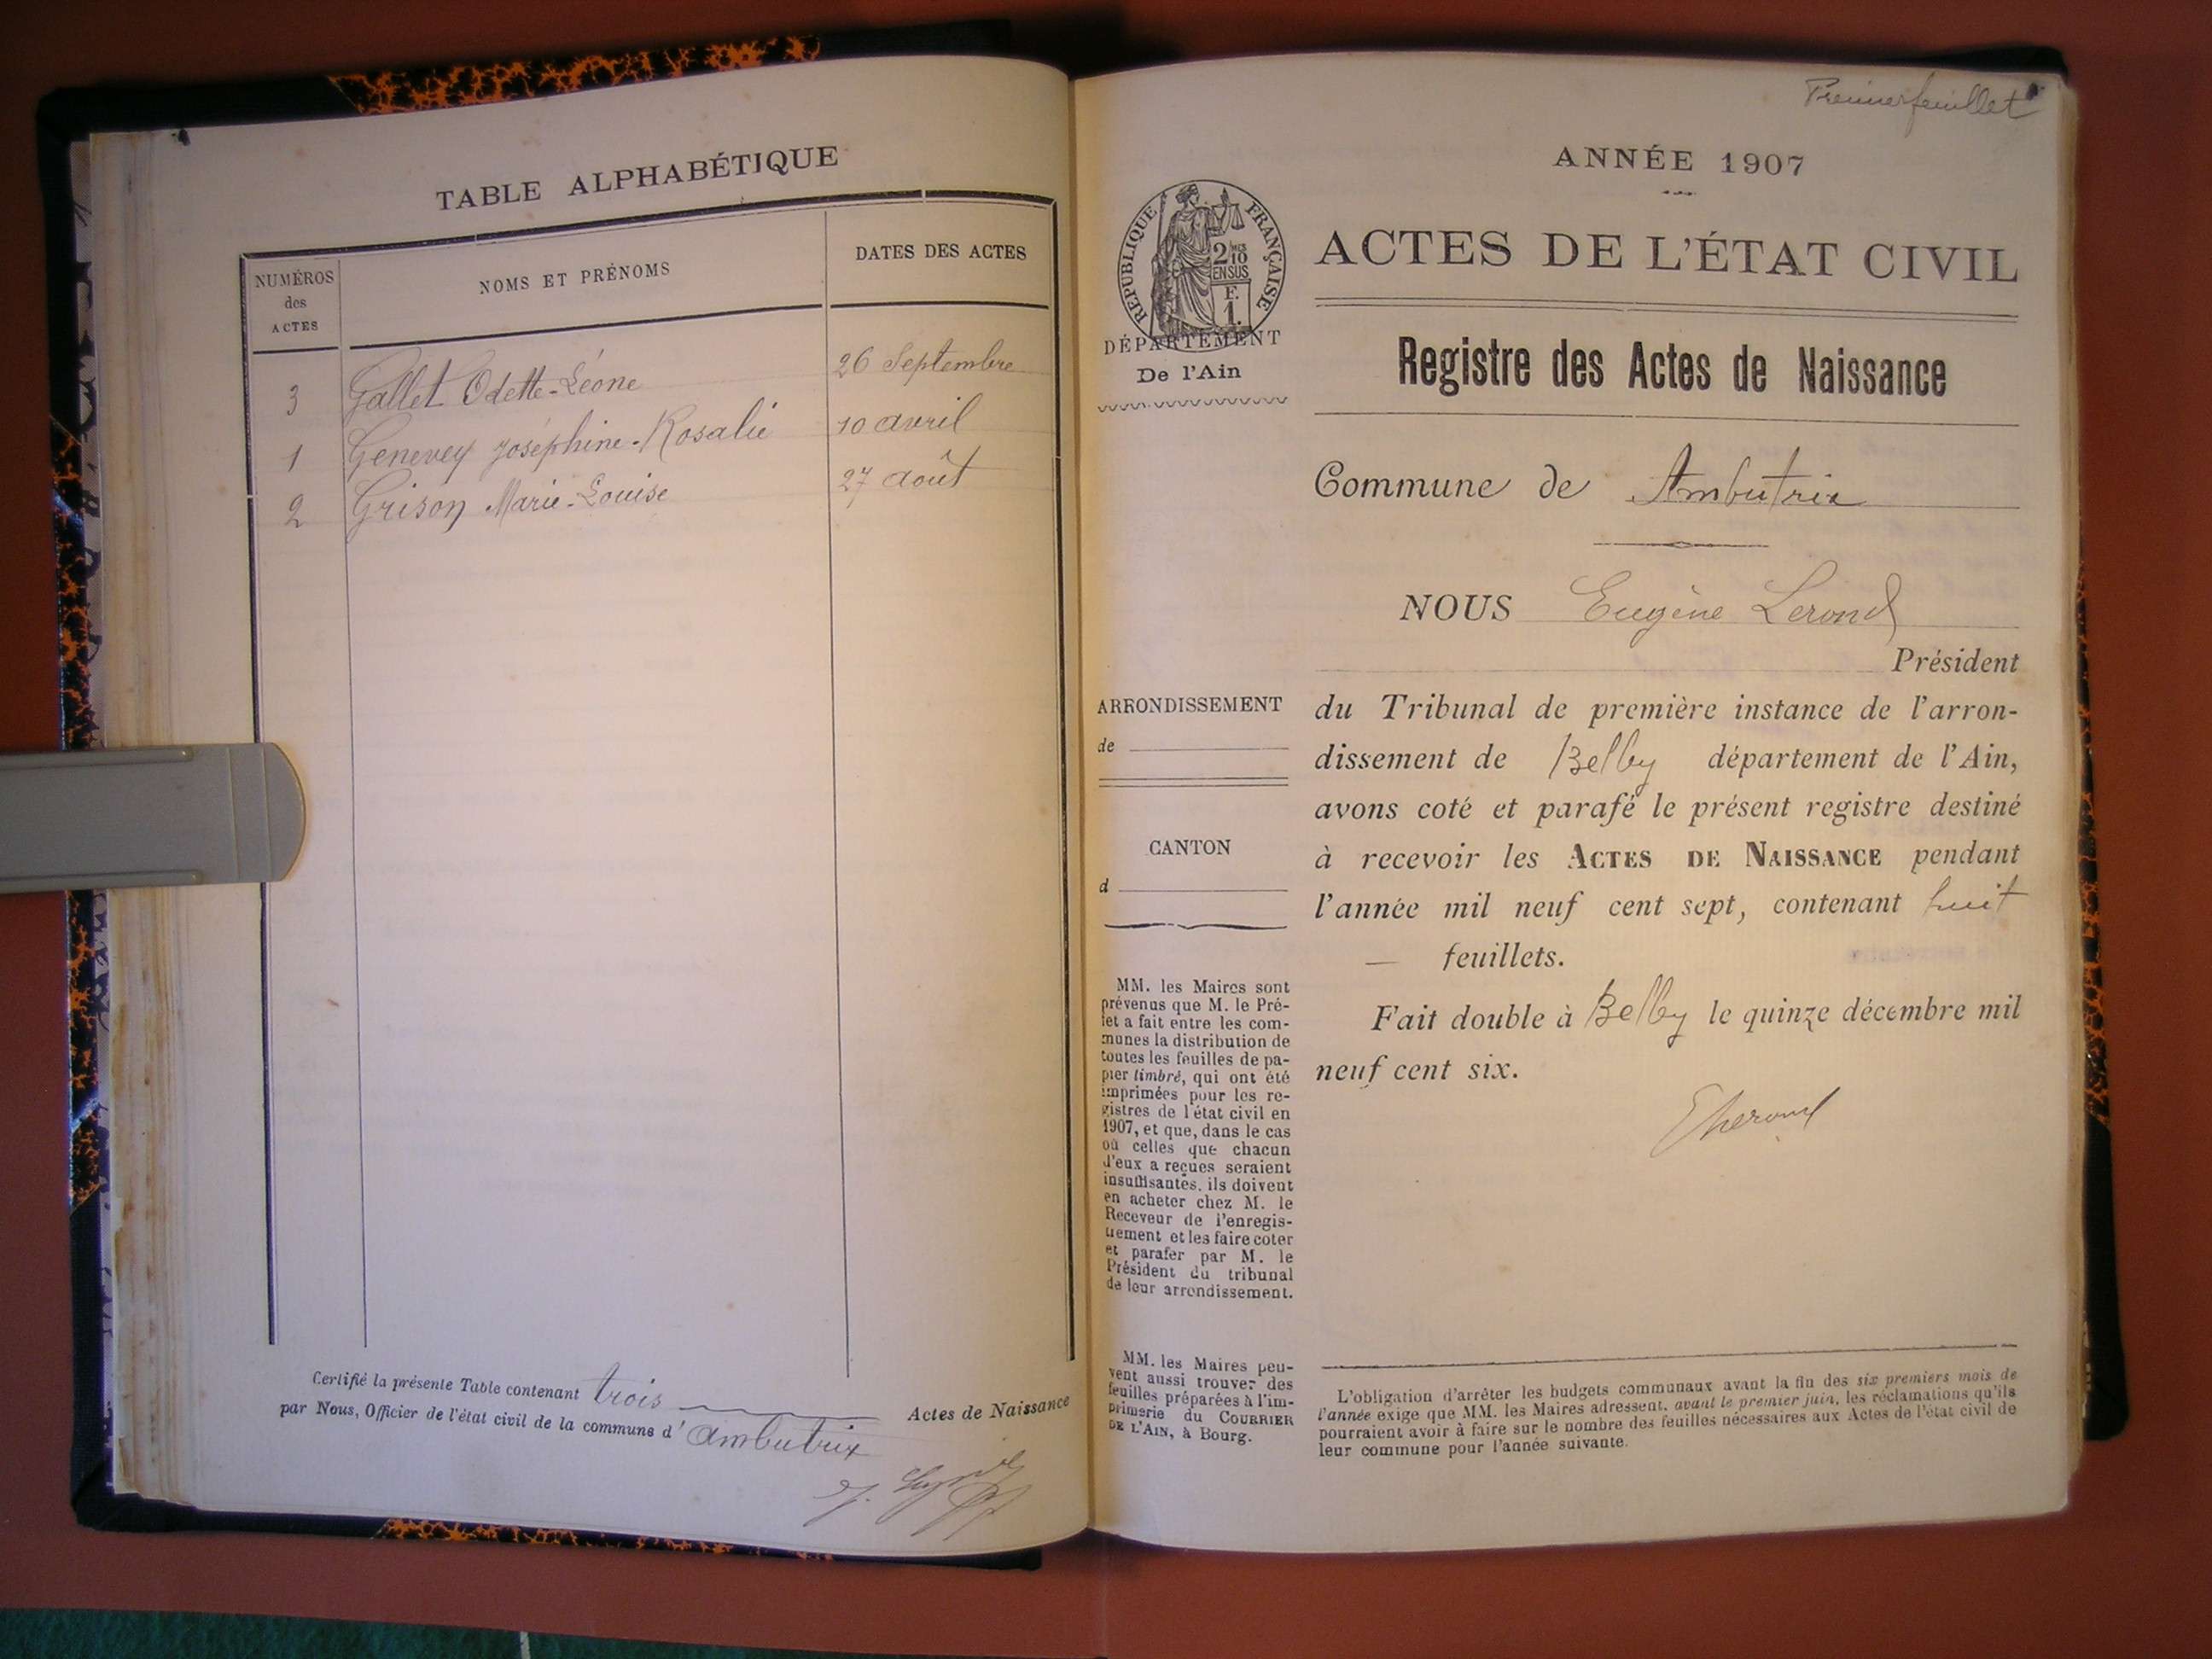 TABLE ALPHABÉTIQUE
NUMÉROS
des
ACTES
NOMS ET PRÉNOMS
DATES DES ACTES
3 Gallet Odette-Léone 26 Septembre
1 Genevey Joséphine-Rosalie 10 avril
2 Grison Marie-Louise 27 août
Certifié la présente Table contenant trois Actes de Naissance
par Nous, Officier de l'état civil de la commune d'Ambutrix
Premier feuillet
ANNÉE 1907
RÉPUBLIQUE FRANÇAISE
2/10
EN SUS
F.
1.
DÉPARTEMENT
De l'Ain
ACTES DE L'ÉTAT CIVIL
Registre des Actes de Naissance
Commune de Ambutrix
NOUS Eugène Lerond
Président
ARRONDISSEMENT
de
CANTON
d
du Tribunal de première instance de l'arron-
dissement de Belley département de l'Ain,
avons coté et parafé le présent registre destiné
à recevoir les ACTES DE NAISSANCE pendant
l'année mil neuf cent sept, contenant huit
— feuillets.
Fait double à Belley le quinze décembre mil
neuf cent six.
MM. les Maires sont
prévenus que M. le Pré-
fet a fait entre les com-
munes la distribution de
toutes les feuilles de pa-
pier timbré, qui ont été
imprimées pour les re-
gistres de l'état civil en
1907, et que, dans le cas
où celles que chacun
d'eux a reçues seraient
insuffisantes, ils doivent
en acheter chez M. le
Receveur de l'enregis-
trement et les faire coter
et parafer par M. le
Président du tribunal
de leur arrondissement.
MM. les Maires peu-
vent aussi trouver des
feuilles préparées à l'im-
primerie du COURRIER
DE L'AIN, à Bourg.
L'obligation d'arrêter les budgets communaux avant la fin des six premiers mois de
l'année exige que MM. les Maires adressent, avant le premier juin, les réclamations qu'ils
pourraient avoir à faire sur le nombre des feuilles nécessaires aux Actes de l'état civil de
leur commune pour l'année suivante.